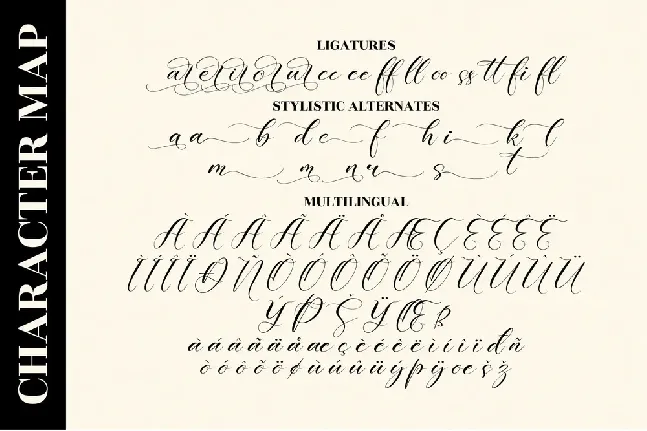 CHARACTER MAP
LIGATURES
ar er ir or ur cc ee ff ll oo ss tt fi fl
STYLISTIC ALTERNATES
a a b d e f h i k l
m m n u s t
MULTILINGUAL
À Á Â Ã Ä Å Æ Ç È É Ê Ë
Ì Í Î Ï Ð Ñ Ò Ó Ô Õ Ö Ø Ù Ú Û Ü
Ý Þ Š Ÿ Œ ß
à á â ã ä å æ ç è é ê ë ì í î ï ð ñ
ò ó ô õ ö ø ù ú û ü ý þ ÿ œ š ž